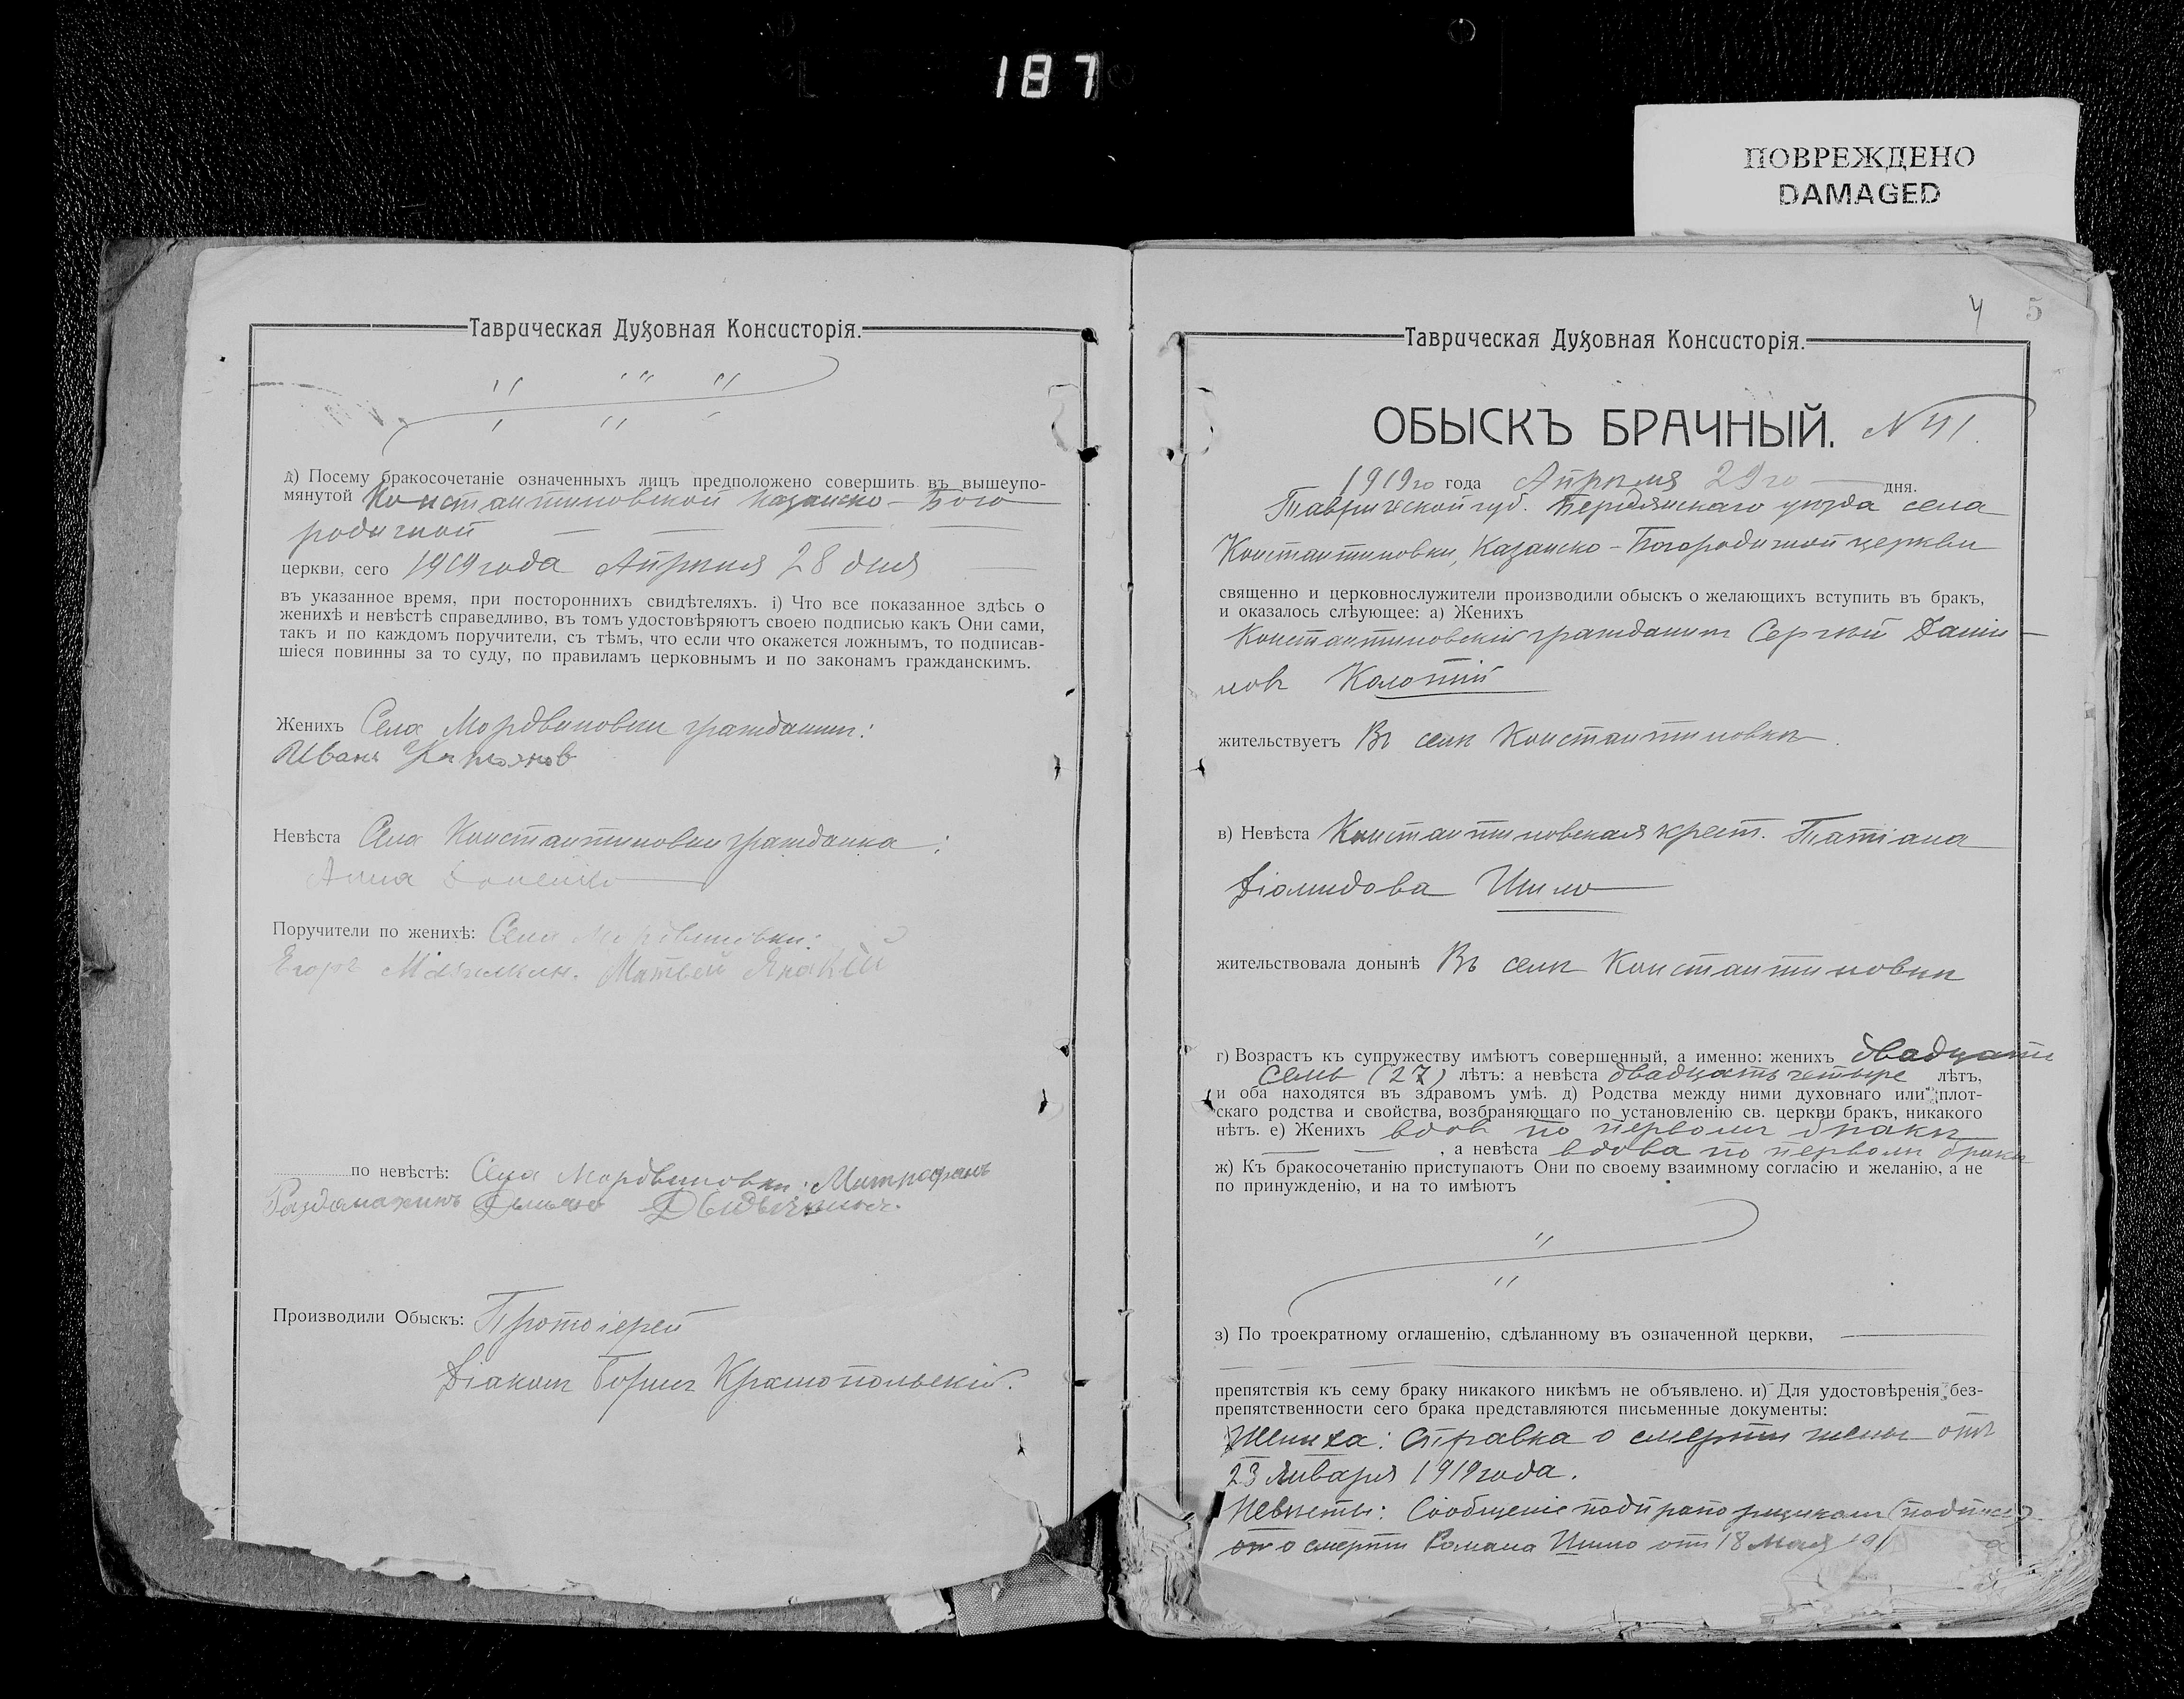 187
ПОВРЕЖДЕНО
DAMAGED
Таврическая Духовная Консисторія.
д) Посему бракосочетаніе означенныхъ лицъ предположено совершить въ вышеупо-
мянутой Константиновской Казанско-Бого
родичной
церкви, сего 1919 года Апрѣля 28 дня
въ указанное время, при постороннихъ свидѣтеляхъ. і) Что все показанное здѣсь о
женихѣ и невѣстѣ справедливо, въ томъ удостовѣряютъ своею подписью какъ Они сами,
такъ и по каждомъ поручители, съ тѣмъ, что если что окажется ложнымъ, то подписав-
шіеся повинны за то суду, по правиламъ церковнымъ и по законамъ гражданскимъ.
Женихъ Села Мордвиновки гражданинъ:
Иванъ
Невѣста Села Константиновки гражданка:
Анна
Поручители по женихѣ: Села Мордвиновки:
Егоръ Матвей
по невѣстѣ: Села Мордвиновки: Митрофанъ
Производили Обыскъ: Протоіерей
Діаконъ Борисъ Краснопольскій.
4 5
Таврическая Духовная Консисторія.
ОБЫСКЪ БРАЧНЫЙ. N 41.
1919го года Апрѣля 29го дня.
Таврической губ. Бердянскаго уѣзда села
Константиновки, Казанско-Богородичной церкви
священно и церковнослужители производили обыскъ о желающихъ вступить въ бракъ,
и оказалось слѣующее: а) Женихъ
Константиновскій гражданинъ Сергѣй Даніи-
ловъ Колотій
жительствуетъ Въ селѣ Константиновкѣ.
в) Невѣста Константиновская крест. Татіана
Діомидова Шило
жительствовала донынѣ Въ селѣ Константиновкѣ
г) Возрастъ къ супружеству имѣютъ совершенный, а именно: женихъ двадцать
семь (27) лѣтъ: а невѣста двадцать четыре лѣтъ,
и оба находятся въ здравомъ умѣ. д) Родства между ними духовнаго или плот-
скаго родства и свойства, возбраняющаго по установленію св. церкви бракъ, никакого
нѣтъ. е) Женихъ вдовъ по первомъ бракѣ
, а невѣста вдова по первомъ бракѣ
ж) Къ бракосочетанію приступаютъ Они по своему взаимному согласію и желанію, а не
по принужденію, и на то имѣютъ
з) По троекратному оглашенію, сдѣланному въ означенной церкви,
препятствія къ сему браку никакого никѣмъ не объявлено. и) Для удостовѣренія без-
препятственности сего брака представляются письменные документы:
Жениха: Справка о смерти жены отъ
23 Января 1919 года.
Невѣсты: Сообщеніе подпрапорщикомъ
о смерти Романа Шило отъ 18 Мая 191